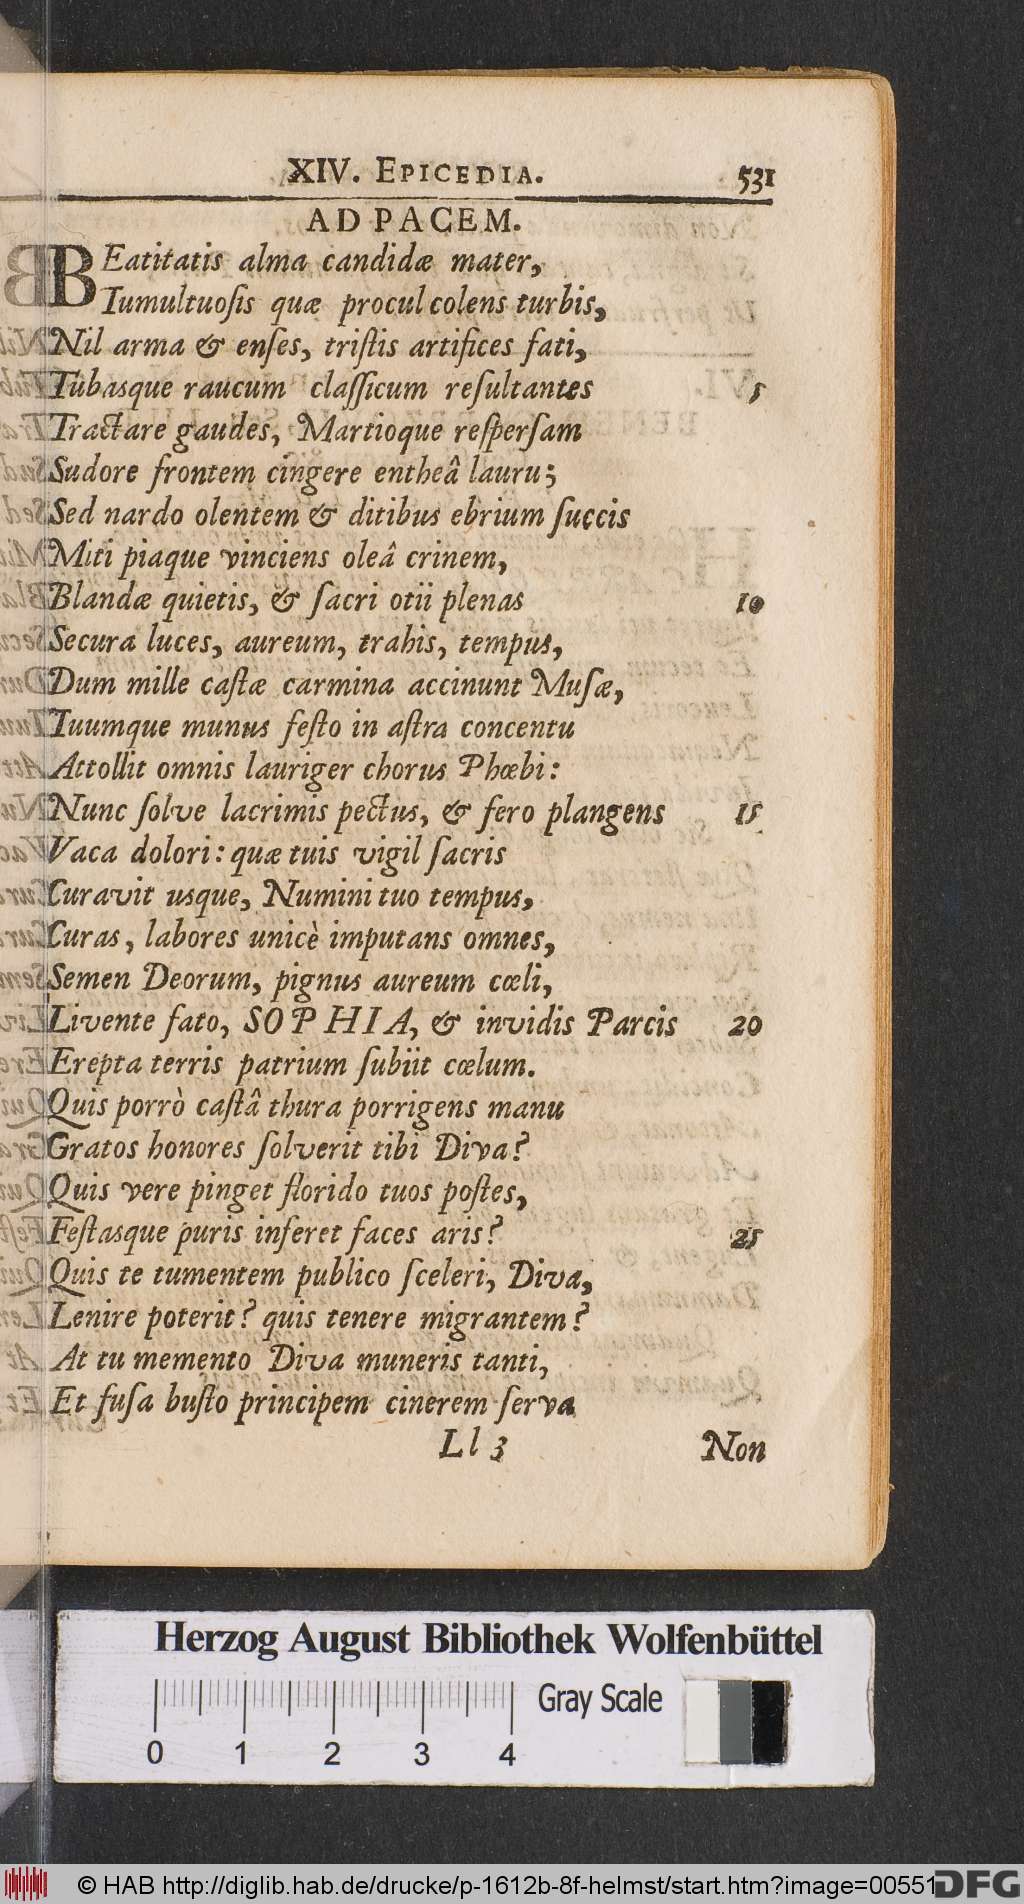 XIV. EPICEDIA. 531
AD PACEM.
BEatitatis alma candidæ mater,
Tumultuoſis quæ procul colens turbis,
Nil arma & enſes, triſtis artifices fati,
Tubasque raucum claſſicum reſultantes 5
Tractare gaudes, Martioque reſperſam
Sudore frontem cingere entheâ lauru;
Sed nardo olentem & ditibus ebrium ſuccis
Miti piaque vinciens oleâ crinem,
Blandæ quietis, & ſacri otii plenas 10
Secura luces, aureum, trahis, tempus,
Dum mille caſtæ carmina accinunt Muſæ,
Tuumque munus feſto in aſtra concentu
Attollit omnis lauriger chorus Phœbi:
Nunc ſolve lacrimis pectus, & fero plangens 15
Vaca dolori: quæ tuis vigil ſacris
Curavit usque, Numini tuo tempus,
Curas, labores unicè imputans omnes,
Semen Deorum, pignus aureum cœli,
Livente fato, SOPHIA, & invidis Parcis 20
Erepta terris patrium ſubiit cœlum.
Quis porrò caſtâ thura porrigens manu
Gratos honores ſolverit tibi Diva?
Quis vere pinget florido tuos poſtes,
Feſtasque puris inſeret faces aris? 25
Quis te tumentem publico ſceleri, Diva,
Lenire poterit? quis tenere migrantem?
At tu memento Diva muneris tanti,
Et fuſa buſto principem cinerem ſerva
Ll 3 Non
Herzog August Bibliothek Wolfenbüttel
Gray Scale
0 1 2 3 4
© HAB http://diglib.hab.de/drucke/p-1612b-8f-helmst/start.htm?image=00551
DFG